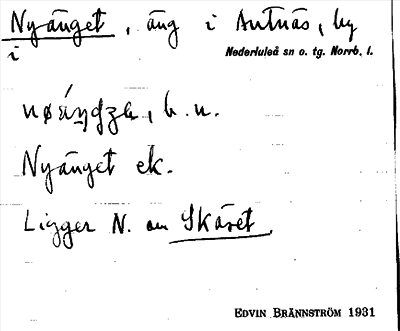 Nyänget, äng i Antnäs, by
i Nederluleå sn o. tg. Norrb. l.
b. u.
Nyänget ek.
Ligger N. om Skäret.
EDVIN BRÄNNSTRÖM 1931